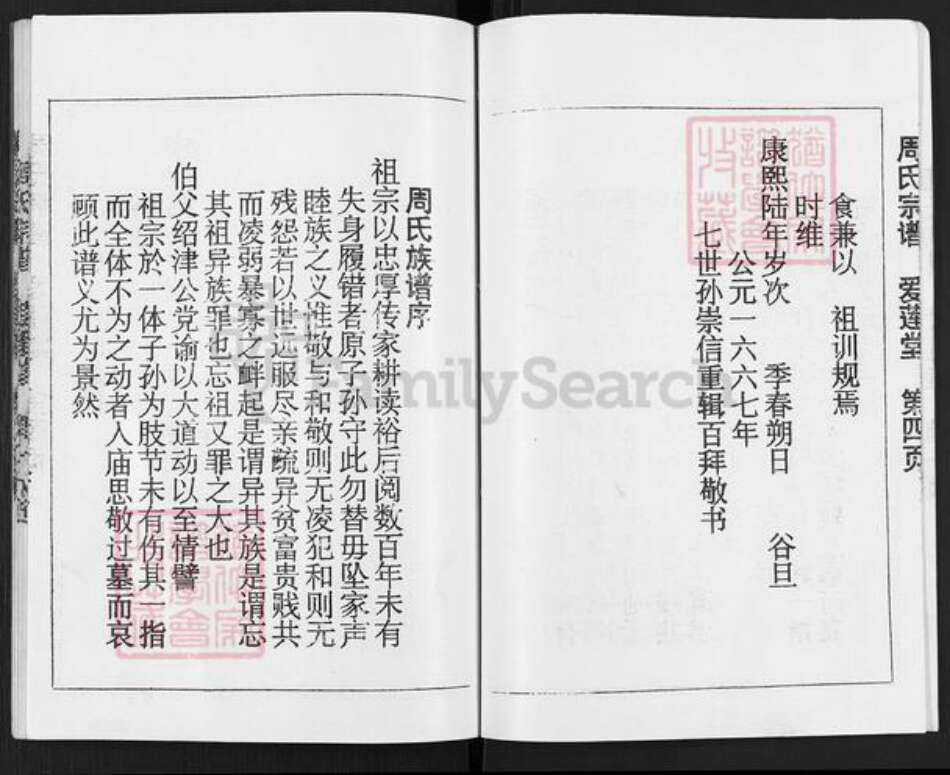 周氏宗谱 爱莲堂 第四页
食兼以 祖训规焉
时维
康熙陆年岁次 季春朔日 谷旦
公元一六六七年
七世孙崇信重辑百拜敬书
周氏族谱序
祖宗以忠厚传家耕读裕后阅数百年未有
失身履错者原子孙守此勿替毋坠家声
睦族之义惟敬与和敬则无凌犯和则无
残怨若以世远服尽亲疏异贫富贵贱共
而凌弱暴寡之衅起是谓异其族是谓忘
其祖异族罪也忘祖又罪之大也
伯父绍津公党谕以大道动以至情譬
祖宗於一体子孙为肢节未有伤其一指
而全体不为之动者入庙思敬过墓而哀
顾此谱义尤为景然
FamilySearch